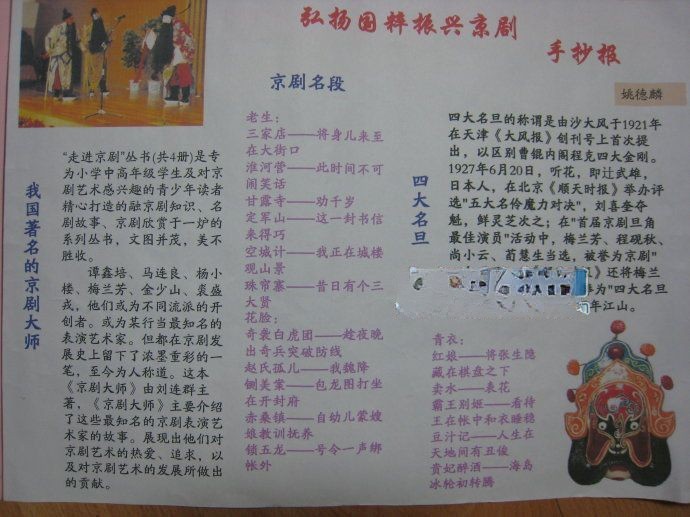 弘扬国粹振兴京剧
手抄报
姚德麟
京剧名段
我国著名的京剧大师
"走进京剧"丛书(共4册)是专
为小学中高年级学生及对京
剧艺术感兴趣的青少年读者
精心打造的融京剧知识、名
剧故事、京剧欣赏于一炉的
系列丛书，文图并茂，美不
胜收。
谭鑫培、马连良、杨小
楼、梅兰芳、金少山、裘盛
戎，他们或为不同流派的开
创者。或为某行当最知名的
表演艺术家。但都在京剧发
展史上留下了浓墨重彩的一
笔，至今为人称道。这本
《京剧大师》由刘连群主
著，《京剧大师》主要介绍
了这些最知名的京剧表演艺
术家的故事。展现出他们对
京剧艺术的热爱、追求，以
及对京剧艺术的发展所做出
的贡献。
老生：
三家店——将身儿来至
在大街口
淮河营——此时间不可
闹笑话
甘露寺——劝千岁
定军山——这一封书信
来得巧
空城计——我正在城楼
观山景
珠帘寨——昔日有个三
大贤
花脸：
奇袭白虎团——趁夜晚
出奇兵突破防线
赵氏孤儿——我魏降
铡美案——包龙图打坐
在开封府
赤桑镇——自幼儿蒙嫂
娘教训抚养
锁五龙——号令一声绑
帐外
四大名旦
四大名旦的称谓是由沙大风于1921年
在天津《大风报》创刊号上首次提
出，以区别曹锟内阁程克四大金刚。
1927年6月20日，听花，即辻武雄，
日本人，在北京《顺天时报》举办评
选"五大名伶魔力对决"，刘喜奎夺
魁，鲜灵芝次之；在"首届京剧旦角
最佳演员"活动中，梅兰芳、程砚秋、
尚小云、荀慧生当选，被誉为京剧"
》还将梅兰
为"四大名旦
年江山。
青衣：
红娘——将张生隐
藏在棋盘之下
卖水——表花
霸王别姬——看待
王在帐中和衣睡稳
豆汁记——人生在
天地间有丑俊
贵妃醉酒——海岛
冰轮初转腾